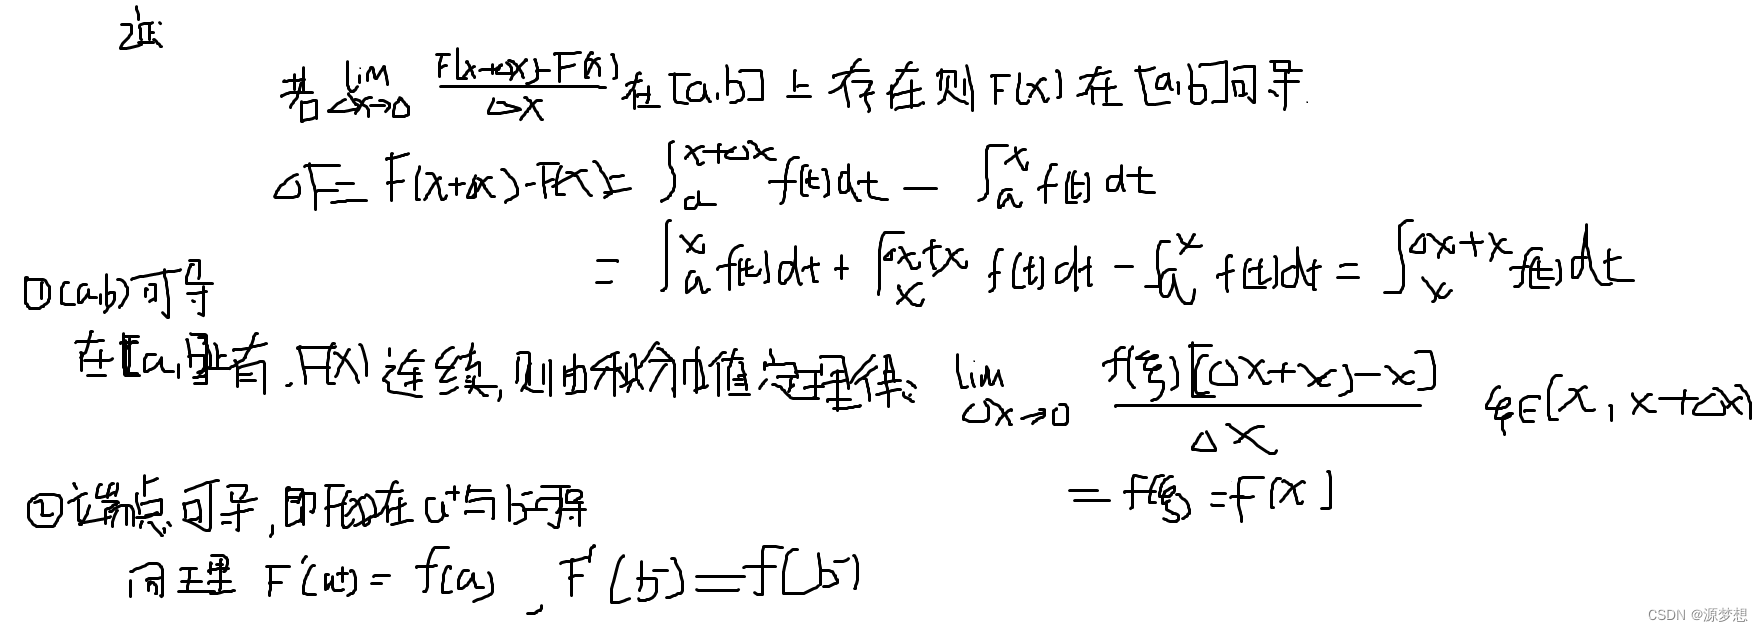 证:
若 lim Δx→0 F(x+Δx)-F(x) / Δx 在[a,b]上存在则F(x)在[a,b]可导.
ΔF = F(x+Δx)-F(x) = ∫_a^{x+Δx} f(t)dt - ∫_a^x f(t)dt
= ∫_a^x f(t)dt + ∫_x^{Δx+x} f(t)dt - ∫_a^x f(t)dt = ∫_x^{Δx+x} f(t)dt
①(a,b)可导
在[a,b]上有.F(x)连续,则由积分中值定理得: lim Δx→0 f(ξ)[(Δx+x)-x] / Δx ξ∈(x,x+Δx)
= f(ξ) = f(x)
②端点可导,即F(x)在a⁺与b⁻可导
同理 F'(a⁺) = f(a), F'(b⁻) = f(b⁻)
CSDN @源梦想